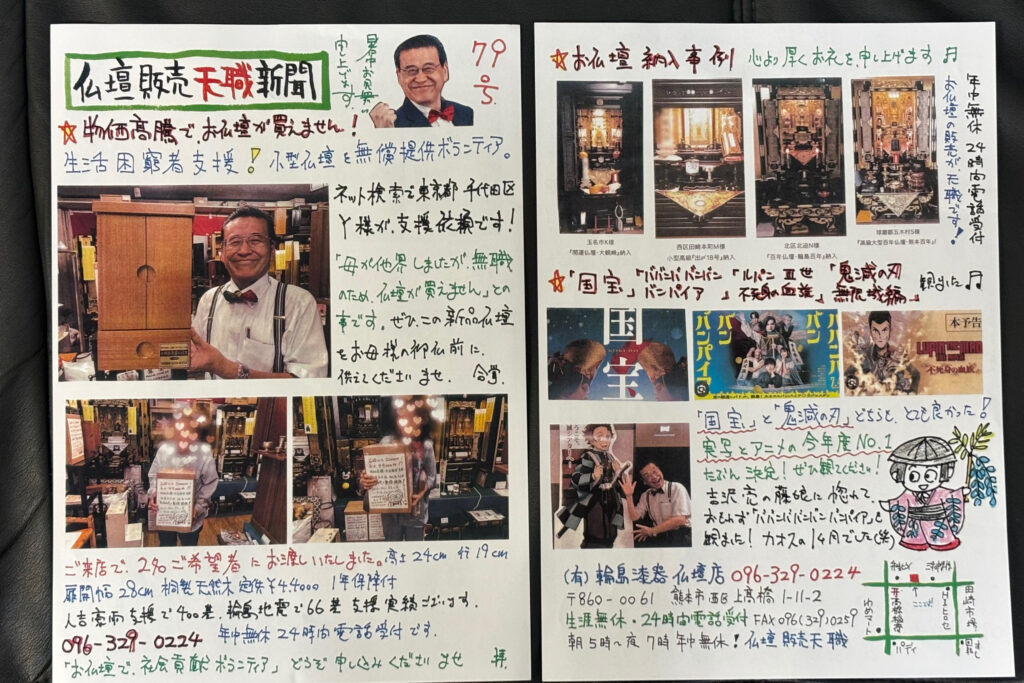 仏壇販売天職新聞
暑中お見舞
申し上げます。
79号
☆物価高騰で、お仏壇が買えません!
生活困窮者支援!小型仏壇を無償提供ボランティア。
ネット検索で東京都千代田区
Y様が、支援依頼です!
「母が他界しましたが、無職
のため、仏壇が買えません」との
事です。ぜひ、この新品仏壇
をお母様の御仏前に、
供えてくださいませ、合掌、
ご来店で、2名ご希望者にお渡しいたしました。高さ24cm 行19cm
扉開幅28cm 桐製天然木 定価¥44,000 1年保障付
人吉豪雨支援で400基、輪島地震で66基支援実績ございます。
096-329-0224 年中無休24時間電話受付です。
「お仏壇で、社会貢献ボランティア」どうぞ申し込みくださいませ 拝、
☆お仏壇納入事例 心より厚くお礼を、申し上げます♬
年中無休24時間電話受付
お仏壇の販売が、天職です!
玉名市K様
『開運仏壇・大観峰』納入
西区田崎本町M様
小型高級『出〆18号』納入
北区北迫N様
『百年仏壇・輪島百年』納入
球磨郡五木村S様
『高級大型百年仏壇・熊本百年』
☆「国宝」「ババンババンバンバンパイア」「ルパン三世 不死身の血族」「鬼滅の刃 無限城編」観ました♬
国宝
バンパイア
本予告
LUPIN THE IIIRD
不死身の血族
「国宝」と「鬼滅の刃」どちらも、とても良かった!
実写とアニメの今年度NO.1
たぶん決定!ぜひ観てください!
吉沢亮の藤娘に惚れて、
おもわず「ババンババンバンバンパイア」も
観ました!カオスの1ヶ月でした(笑)
(有)輪島漆器仏壇店 096-329-0224
〒860-0061 熊本市西区上高橋1-11-2
生涯無休・24時間電話受付 FAX096(329)0259
朝5時~夜7時 年中無休!仏壇販売天職
ここです!
田崎市場
ゆめマート